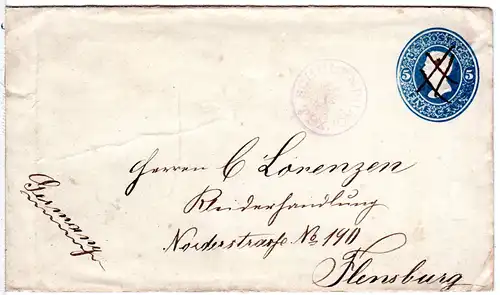 5 5
Herren C Lorenzen
Kleiderhandlung
Norderstrasse No 190
Flensburg
Germany